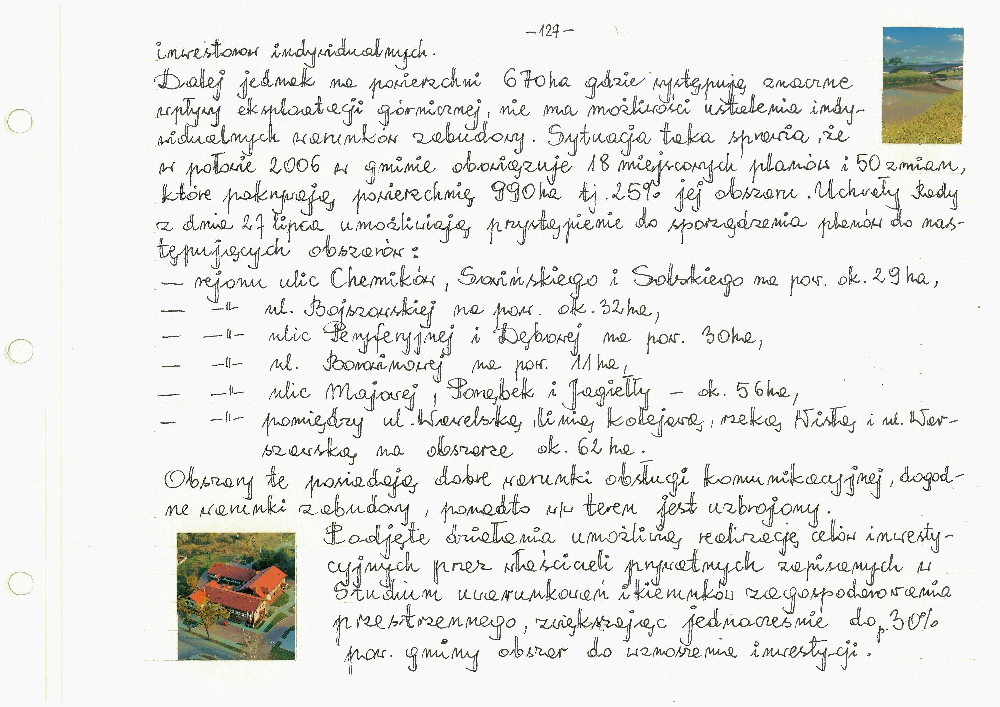 -127-
inwestorów indywidualnych.
Dalej jednak na powierzchni 670ha gdzie występują znaczne
wpływy eksploatacji górniczej, nie ma możliwości ustalenia indy-
widualnych warunków zabudowy. Sytuacja taka sprawia, że
w połowie 2006 w gminie obowiązuje 18 miejscowych planów i 50 zmian,
które pokrywają powierzchnię 990ha tj. 25% jej obszaru. Uchwały Rady
z dnia 27 lipca umożliwiają przystąpienie do sporządzenia planów do nas-
tępujących obszarów:
— rejonu ulic Chemików, Sowińskiego i Solskiego na pow. ok. 29 ha,
— —"— ul. Bojszowskiej na pow. ok. 32ha,
— —"— ulic Peryferyjnej i Dębowej na pow. 30ha,
— —"— ul. Borowinowej na pow. 11 ha,
— —"— ulic Majowej, Porąbek i Jagiełły - ok. 56ha,
— —"— pomiędzy ul. Wawelską, linią kolejową, rzeką Wisłą i ul. War-
szawską na obszarze ok. 62 ha.
Obszary te posiadają dobre warunki obsługi komunikacyjnej, dogod-
ne warunki zabudowy, ponadto w/w teren jest uzbrojony.
Podjęte działania umożliwią realizację celów inwesty-
cyjnych przez właścicieli prywatnych zapisanych w
Studium uwarunkowań i kierunków zagospodarowania
przestrzennego, zwiększając jednocześnie do p. 30%
pow. gminy obszar do wznoszenia inwestycji.